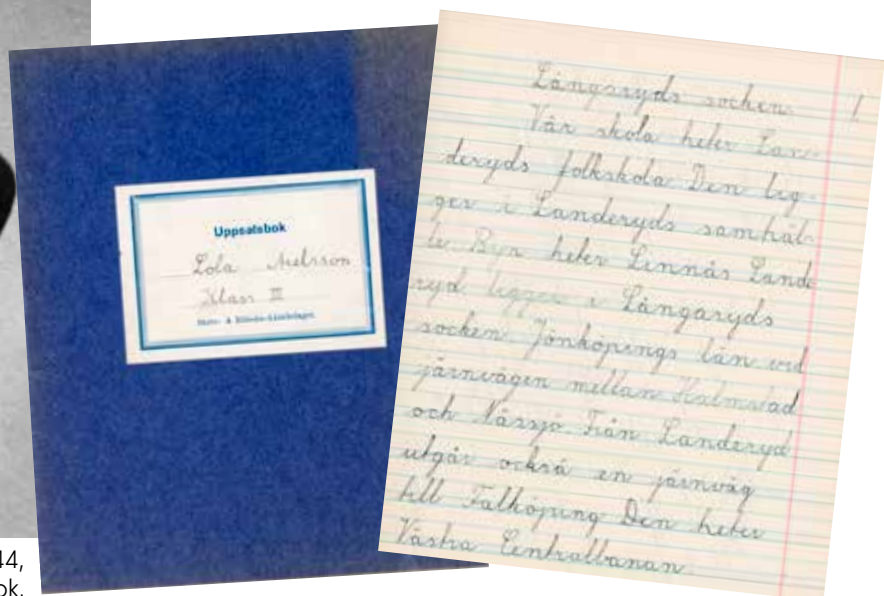 Uppsatsbok
Lola Axelsson
Klass III
Långaryds socken. 1.
Vår skola heter Lan-
deryds folkskola. Den lig-
ger i Landeryds samhäl-
le. Byn heter Linnås. Lande
ryd ligger i Långaryds
socken Jönköpings län vid
järnvägen mellan Halmstad
och Nässjö. Från Landeryd
utgår också en järnväg
till Falköping. Den heter
Västra Centralbanan.
44,
ok.